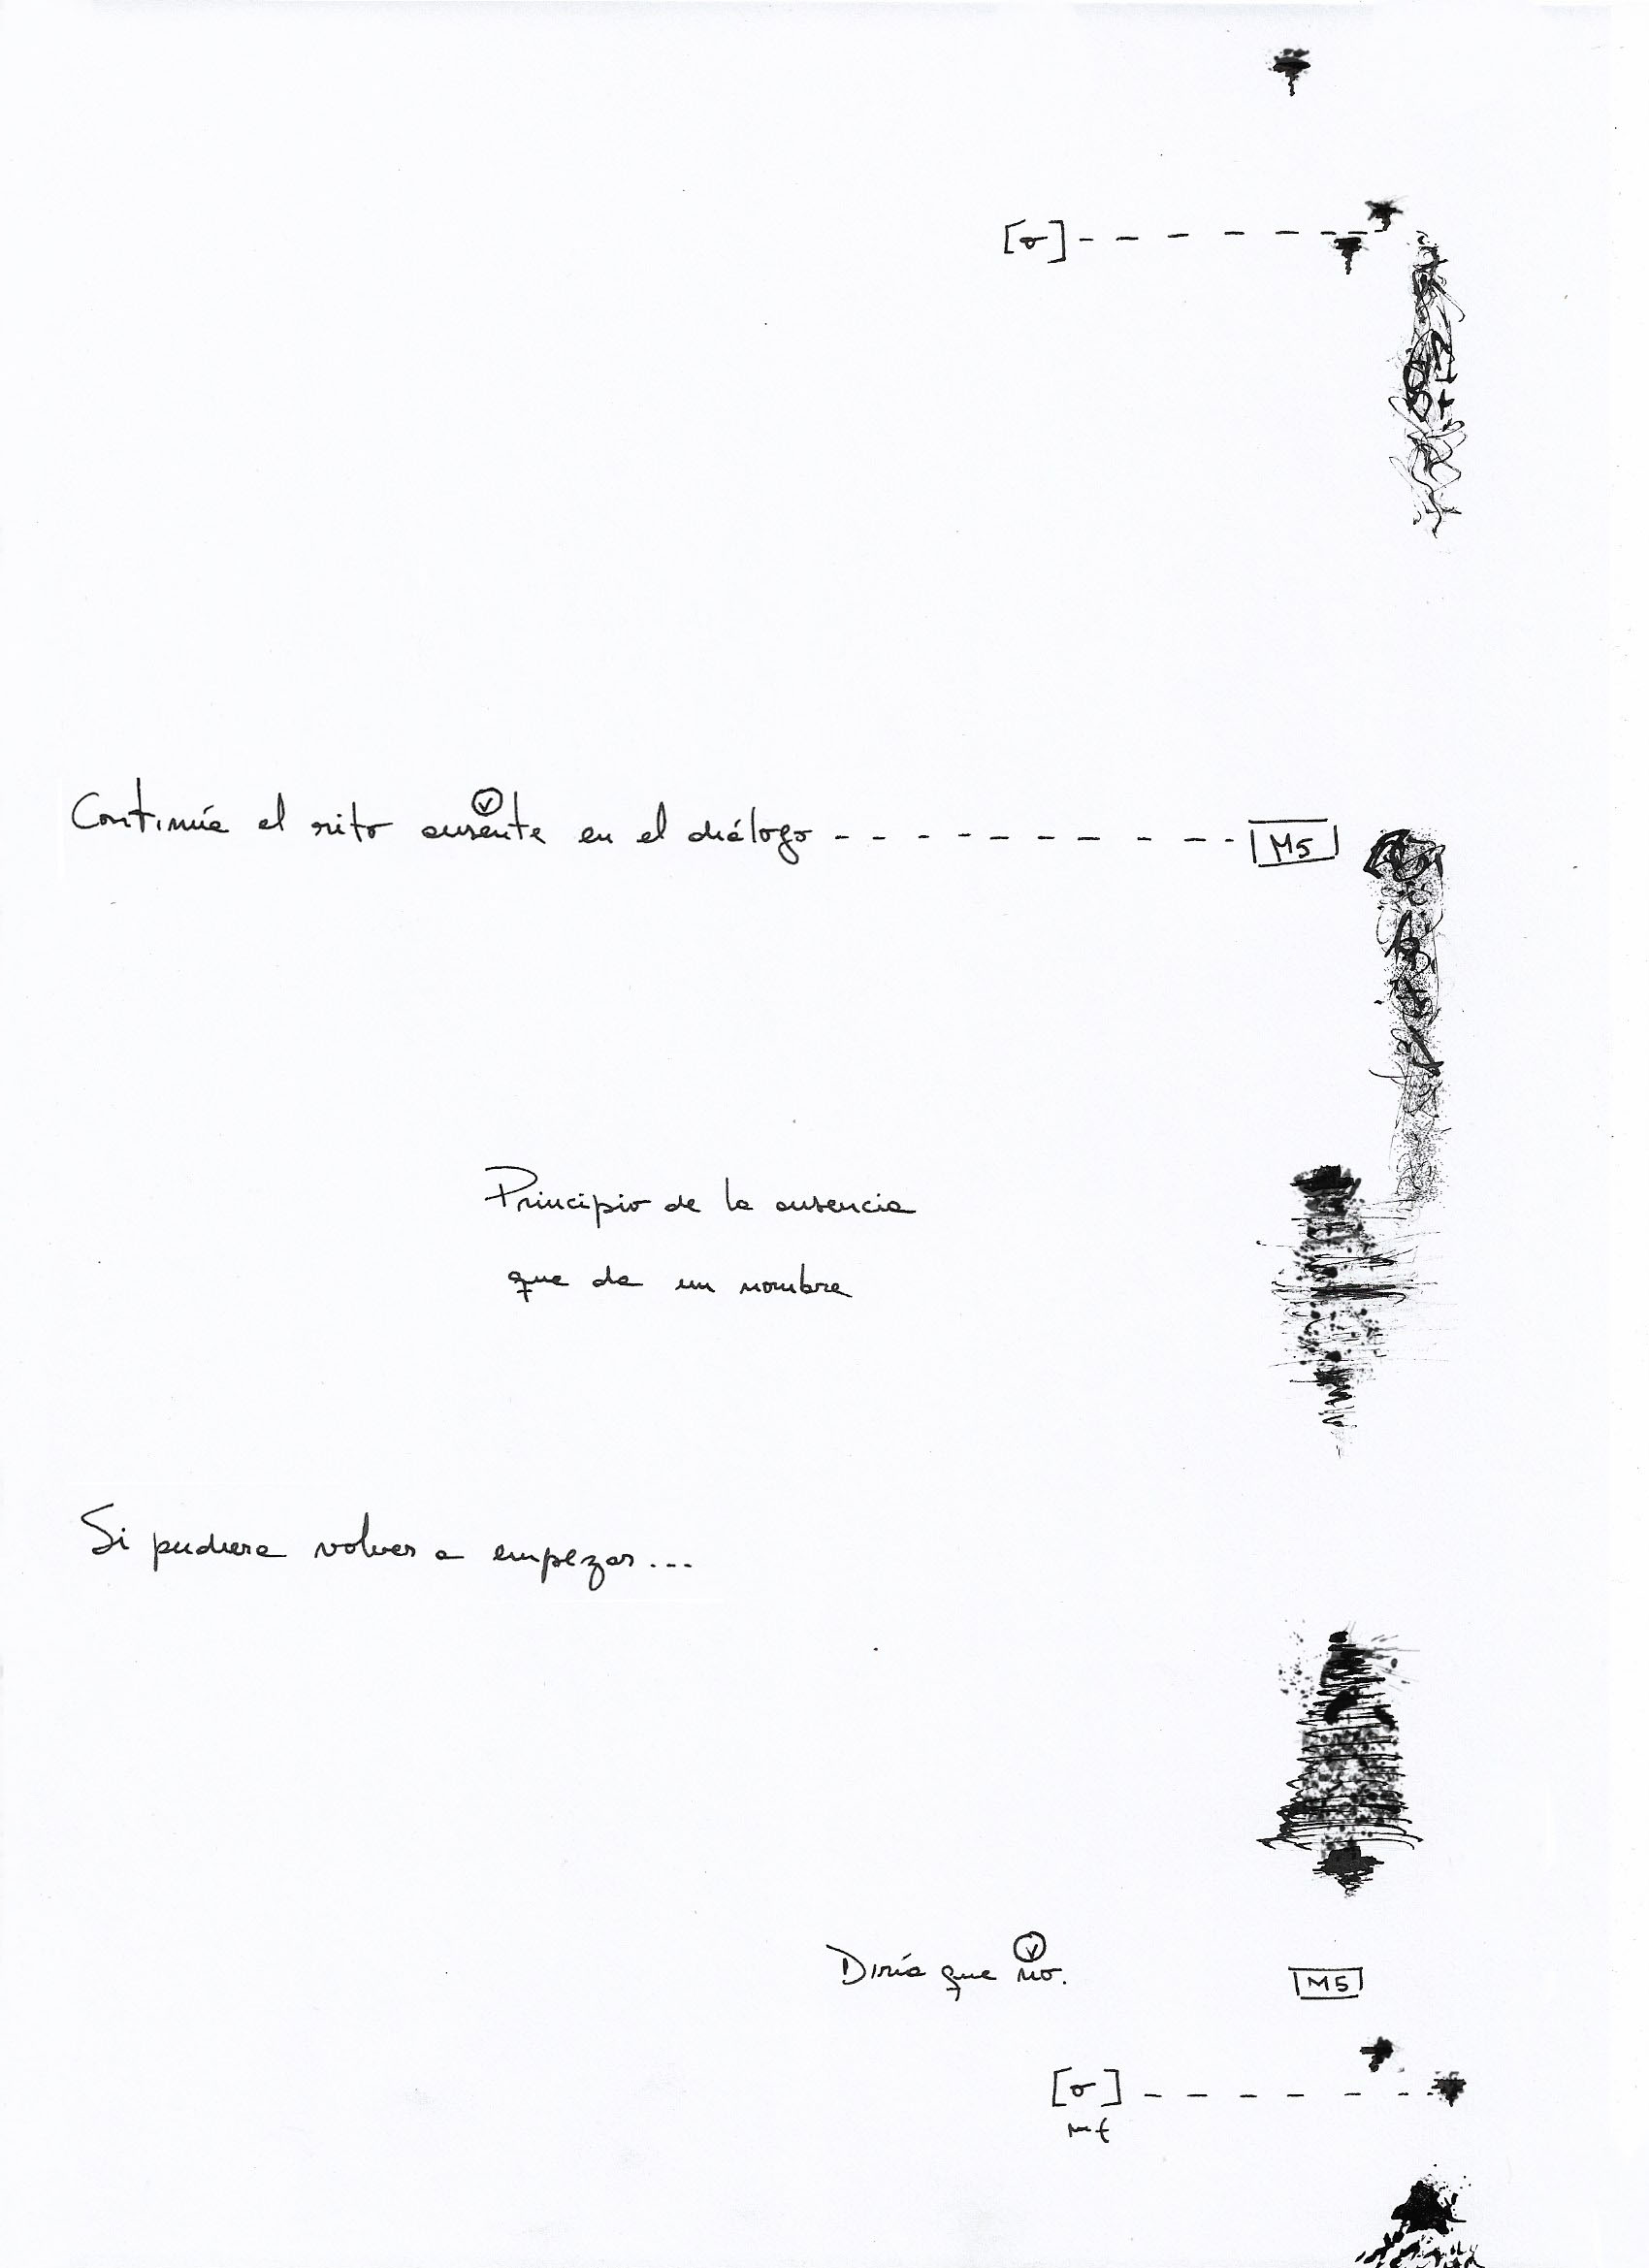 [o]
Continúa el rito ausente en el diálogo M5
Principio de la ausencia
que da un nombre
Si pudiera volver a empezar...
Diría que no. M5
[o]
mf